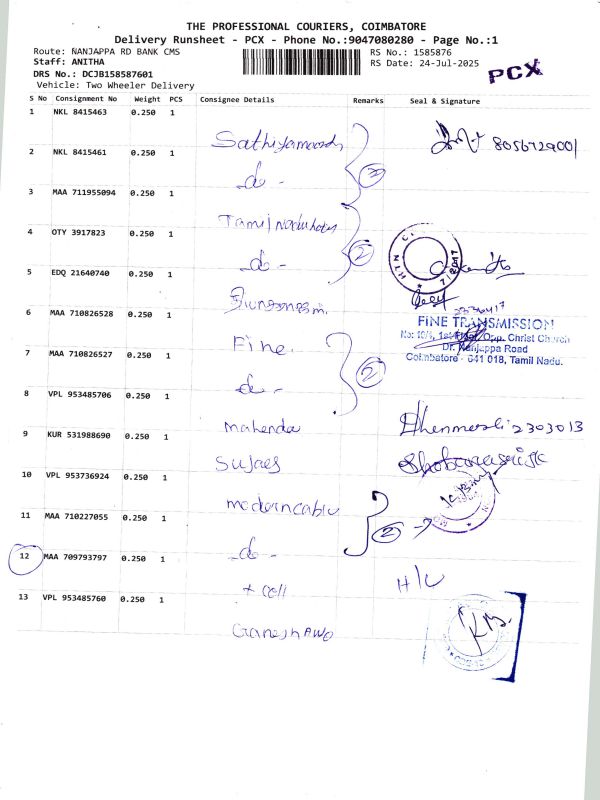 THE PROFESSIONAL COURIERS, COIMBATORE
Delivery Runsheet - PCX - Phone No.:9047080280 - Page No.:1
Route: NANJAPPA RD BANK CMS
RS No.: 1585876
Staff: ANITHA
RS Date: 24-Jul-2025
PCX
DRS No.: DCJB158587601
Vehicle: Two Wheeler Delivery
S No Consignment No Weight PCS Consignee Details Remarks Seal & Signature
1 NKL 8415463 0.250 1
Sathiyamoorthy 8056729001
2 NKL 8415461 0.250 1
-do- 2
3 MAA 711955094 0.250 1
Tamil Nadu hotes
4 OTY 3917823 0.250 1
-do- 2
5 EDQ 21640740 0.250 1
6 MAA 710826528 0.250 1
2336417
FINE TRANSMISSION
Fine.
No: 10/5, 1st Floor, Opp. Christ Church
Dr. Nanjappa Road
Coimbatore - 641 018, Tamil Nadu.
7 MAA 710826527 0.250 1
-do- 2
8 VPL 953485706 0.250 1
Mahenda 2303013
9 KUR 531988690 0.250 1
Sujaes
10 VPL 953736924 0.250 1
moderncable
11 MAA 710227055 0.250 1
-do- 2
12 MAA 709793797 0.250 1
+ cell H/U
13 VPL 953485760 0.250 1
Ganesh AWO